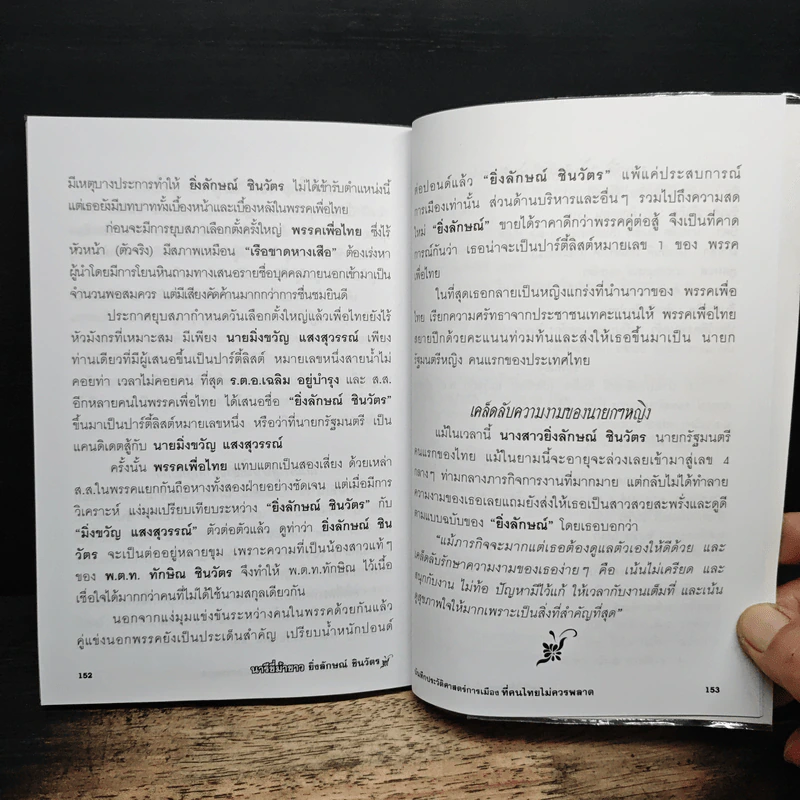 มีเหตุบางประการทำให้ ยิ่งลักษณ์ ชินวัตร ไม่ได้เข้ารับตำแหน่งนี้
แต่เธอยังมีบทบาททั้งเบื้องหน้าและเบื้องหลังในพรรคเพื่อไทย
ก่อนจะมีการยุบสภาเลือกตั้งครั้งใหญ่ พรรคเพื่อไทย ซึ่งไร้
หัวหน้า (ตัวจริง) มีสภาพเหมือน "เรือขาดหางเสือ" ต้องเร่งหา
ผู้นำโดยมีการโยนหินถามทางเสนอรายชื่อบุคคลภายนอกเข้ามาเป็น
จำนวนพอสมควร แต่มีเสียงคัดค้านมากกว่าการชื่นชมยินดี
ประกาศยุบสภากำหนดวันเลือกตั้งใหญ่แล้วเพื่อไทยยังไร้
หัวมังกรที่เหมาะสม มีเพียง นายมิ่งขวัญ แสงสุวรรณ์ เพียง
ท่านเดียวที่มีผู้เสนอขึ้นเป็นปาร์ตี้ลิสต์ หมายเลขหนึ่งสายน้ำไม่
คอยท่า เวลาไม่คอยคน ที่สุด ร.ต.อ.เฉลิม อยู่บำรุง และ ส.ส.
อีกหลายคนในพรรคเพื่อไทย ได้เสนอชื่อ "ยิ่งลักษณ์ ชินวัตร"
ขึ้นมาเป็นปาร์ตี้ลิสต์หมายเลขหนึ่ง หรือว่าที่นายกรัฐมนตรี เป็น
แคนดิเดตสู้กับ นายมิ่งขวัญ แสงสุวรรณ์
ครั้งนั้น พรรคเพื่อไทย แทบแตกเป็นสองเสี่ยง ด้วยเหล่า
ส.ส.ในพรรคแยกกันถือหางทั้งสองฝ่ายอย่างชัดเจน แต่เมื่อมีการ
วิเคราะห์ แง่มุมเปรียบเทียบระหว่าง "ยิ่งลักษณ์ ชินวัตร" กับ
"มิ่งขวัญ แสงสุวรรณ์" ตัวต่อตัวแล้ว ดูท่าว่า ยิ่งลักษณ์ ชิน
วัตร จะเป็นต่ออยู่หลายขุม เพราะความที่เป็นน้องสาวแท้ๆ
ของ พ.ต.ท. ทักษิณ ชินวัตร จึงทำให้ พ.ต.ท.ทักษิณ ไว้เนื้อ
เชื่อใจได้มากกว่าคนที่ไม่ได้ใช้นามสกุลเดียวกัน
นอกจากแง่มุมแข่งขันระหว่างคนในพรรคด้วยกันแล้ว
คู่แข่งนอกพรรคยังเป็นประเด็นสำคัญ เปรียบน้ำหนักปอนด์
152
นารีขี่ม้าขาว ยิ่งลักษณ์ ชินวัตร
ต่อปอนด์แล้ว "ยิ่งลักษณ์ ชินวัตร" แพ้แค่ประสบการณ์
การเมืองเท่านั้น ส่วนด้านบริหารและอื่นๆ รวมไปถึงความสด
ใหม่ "ยิ่งลักษณ์" ขายได้ราคาดีกว่าพรรคคู่ต่อสู้ จึงเป็นที่คาด
การณ์กันว่า เธอน่าจะเป็นปาร์ตี้ลิสต์หมายเลข 1 ของ พรรค
เพื่อไทย
ในที่สุดเธอกลายเป็นหญิงแกร่งที่นำนาวาของ พรรคเพื่อ
ไทย เรียกความศรัทธาจากประชาชนเทคะแนนให้ พรรคเพื่อไทย
สยายปีกด้วยคะแนนท่วมท้นและส่งให้เธอขึ้นมาเป็น นายก
รัฐมนตรีหญิง คนแรกของประเทศไทย
เคล็ดลับความงามของนายกฯหญิง
แม้ในเวลานี้ นางสาวยิ่งลักษณ์ ชินวัตร นายกรัฐมนตรี
คนแรกของไทย แม้ในยามนี้จะอายุจะล่วงเลยเข้ามาสู่เลข 4
กลางๆ ท่ามกลางภารกิจการงานที่มากมาย แต่กลับไม่ได้ทำลาย
ความงามของเธอเลยแถมยังส่งให้เธอเป็นสาวสวยสะพรั่งและดูดี
ตามแบบฉบับของ "ยิ่งลักษณ์" โดยเธอบอกว่า
"แม้ภารกิจจะมากแต่เธอต้องดูแลตัวเองให้ดีด้วย และ
เคล็ดลับรักษาความงามของเธอง่ายๆ คือ เน้นไม่เครียด และ
สนุกกับงาน ไม่ท้อ ปัญหามีไว้แก้ ให้เวลากับงานเต็มที่ และเน้น
ดูสุขภาพใจให้มากเพราะเป็นสิ่งที่สำคัญที่สุด"
บันทึกประวัติศาสตร์การเมือง ที่คนไทยไม่ควรพลาด
153